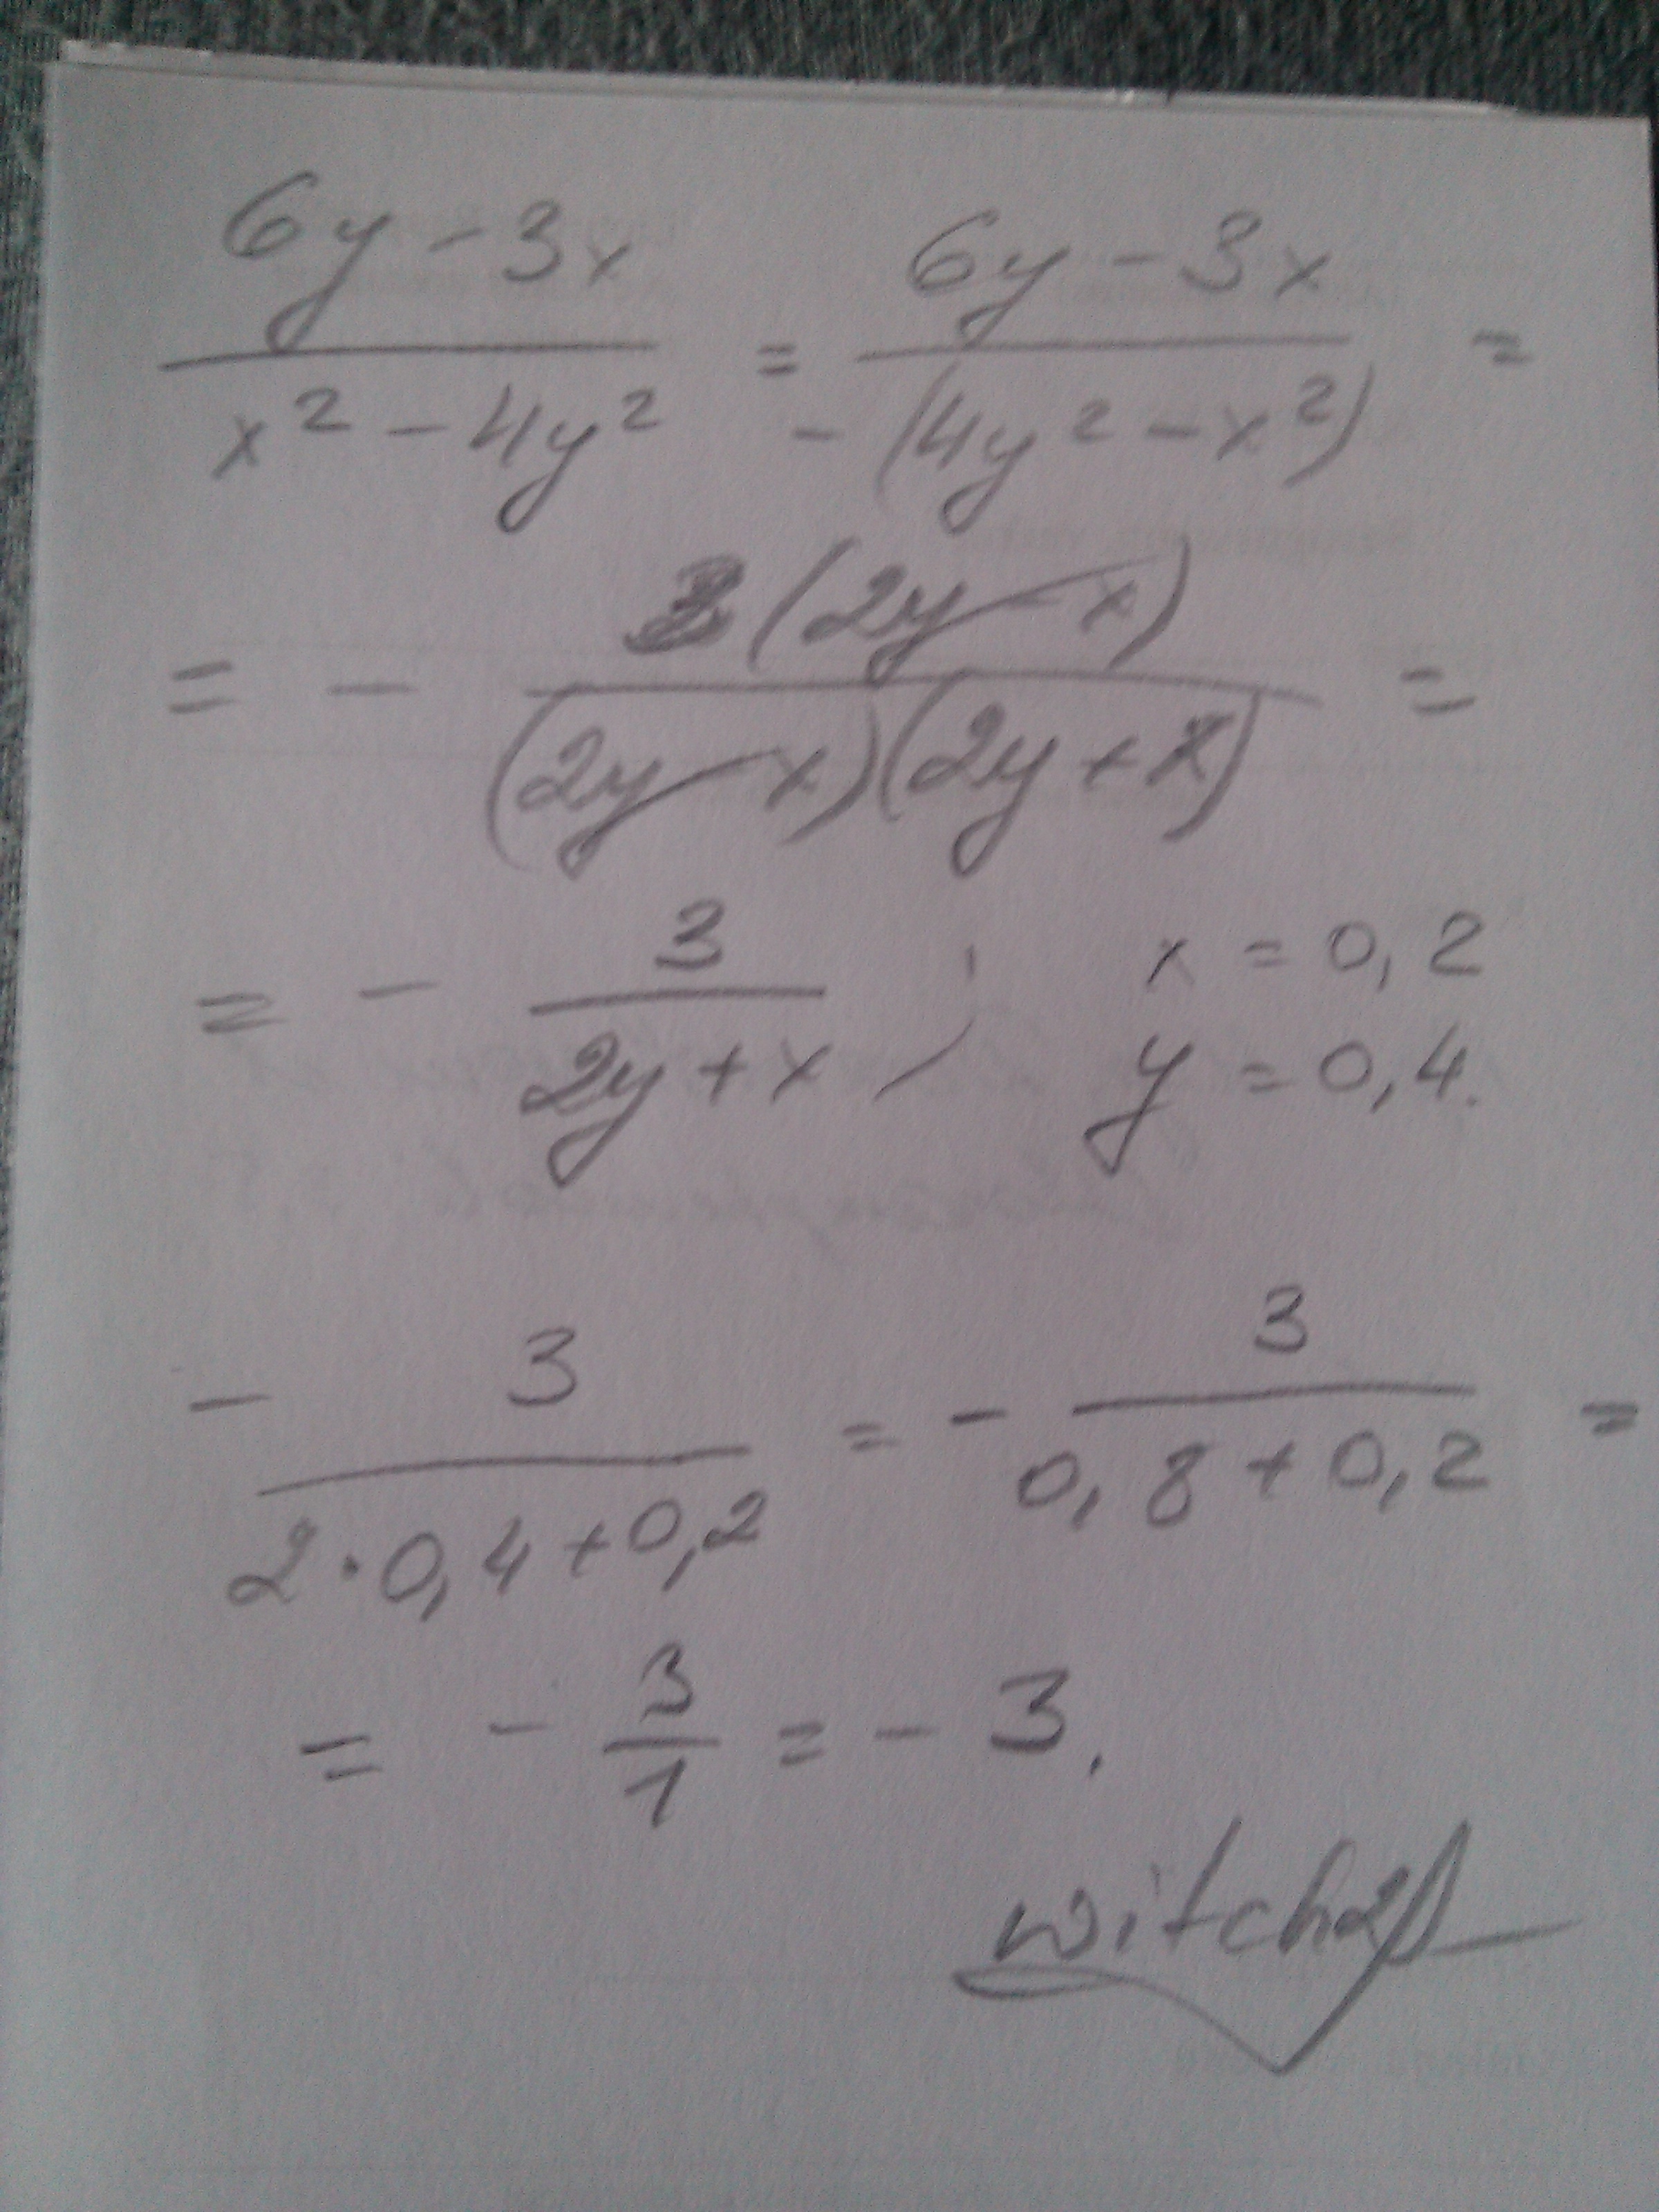 (6y - 3x)/(x² - 4y²) = (6y - 3x)/(-(4y² - x²)) =
= - (3(2y - x))/((2y - x)(2y + x)) =
= - 3/(2y + x) ; x = 0,2
y = 0,4.
- 3/(2·0,4+0,2) = - 3/(0,8+0,2) =
= - 3/1 = - 3.